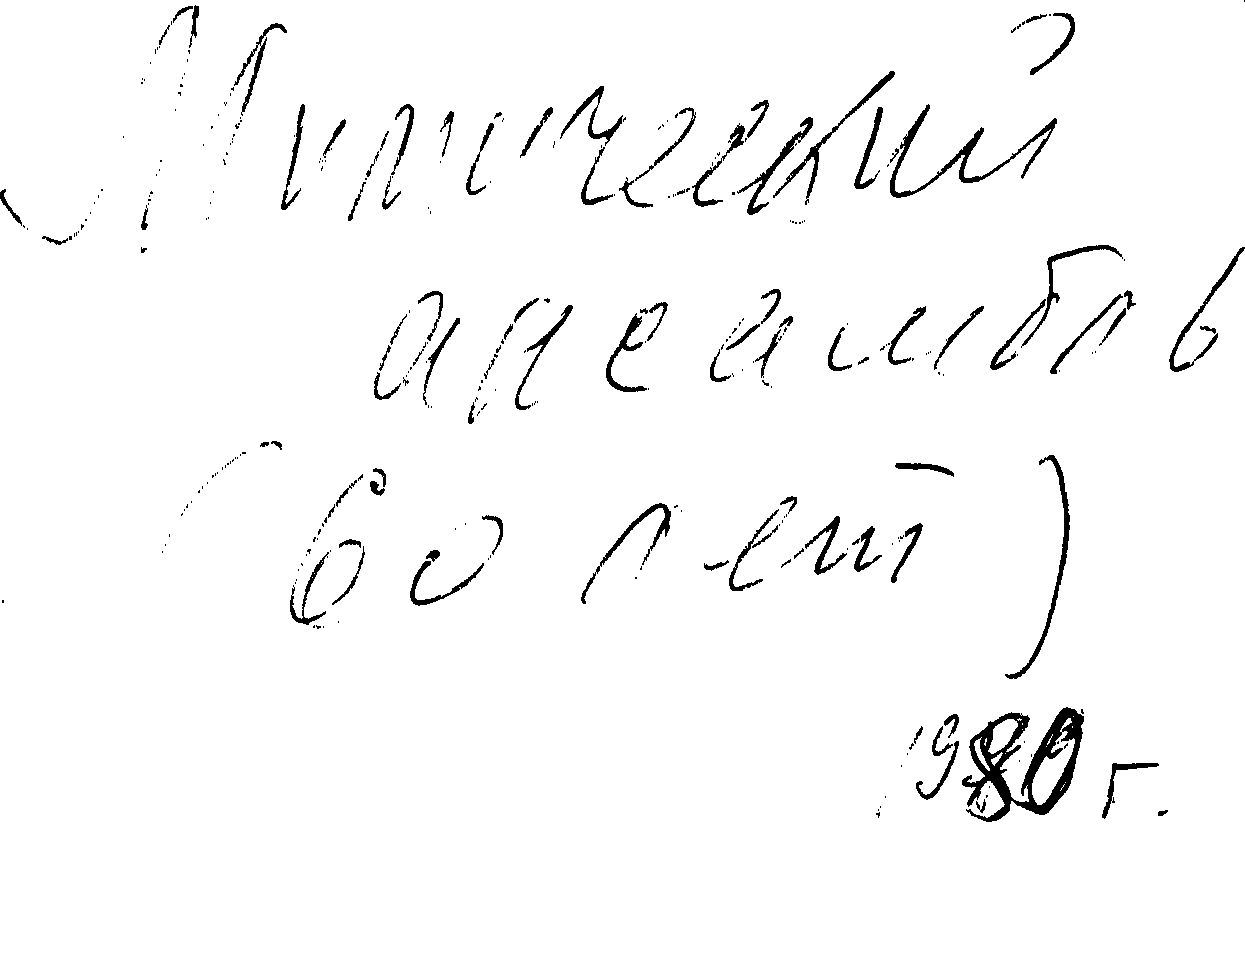 Мимический
ансамбль
(60 лет)
1980 г.